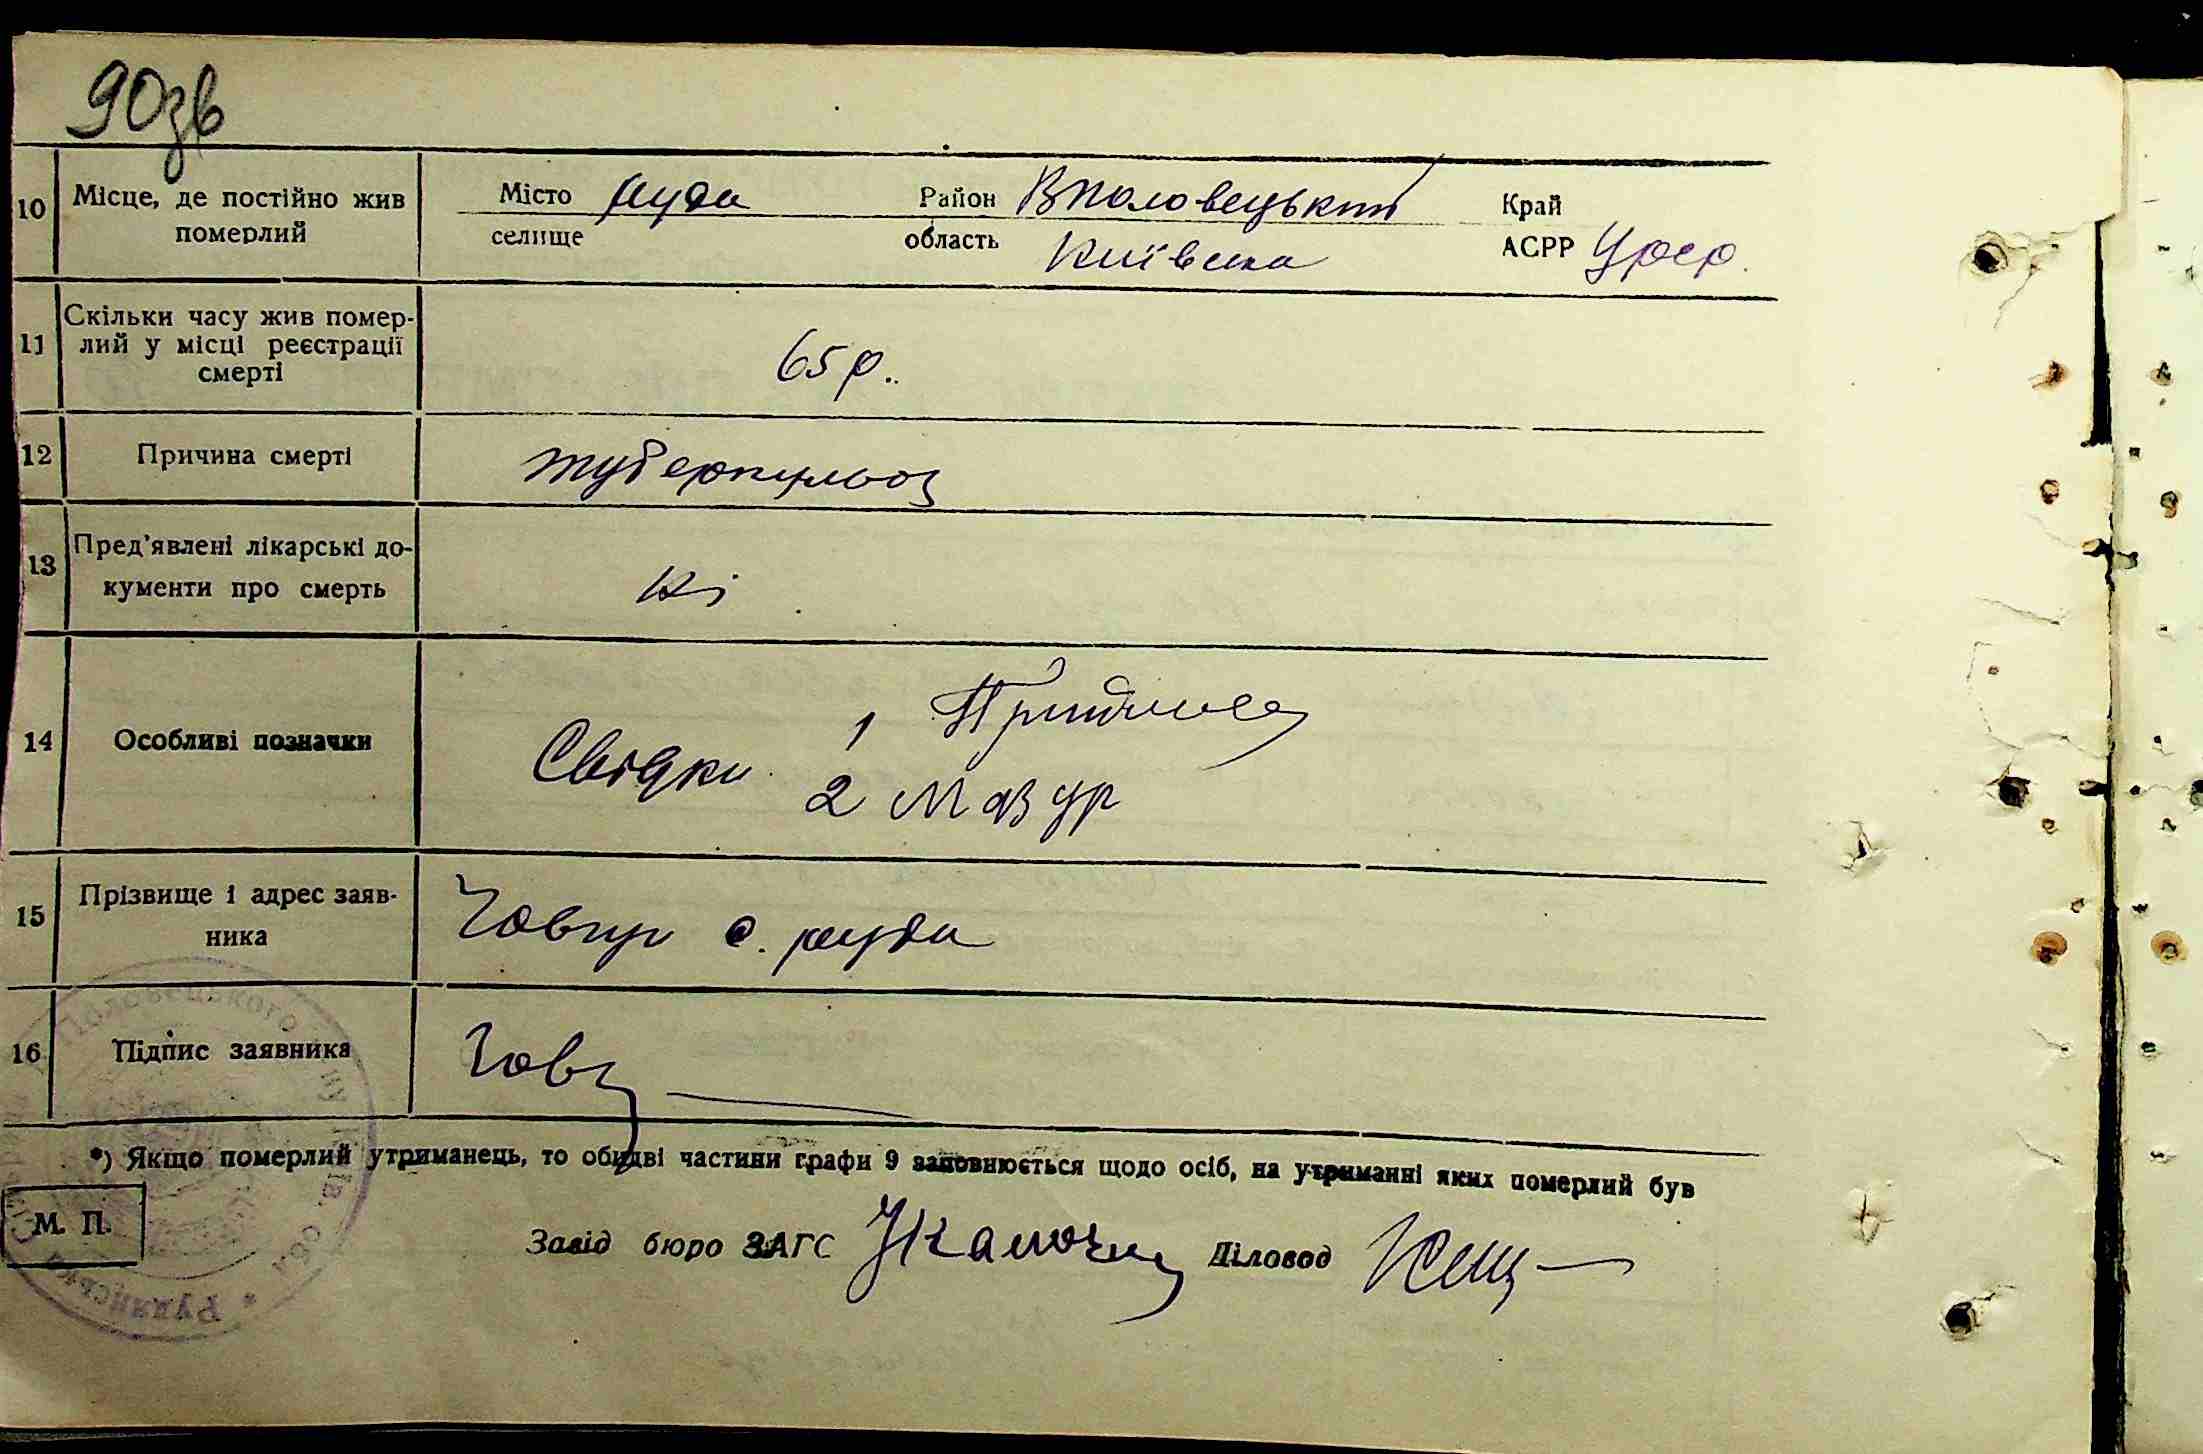 90зв
10 Місце, де постійно жив померлий
Місто Руда Район Вполовецький Край
селище область Київська АСРР Урср.
11 Скільки часу жив помер-
лий у місці реєстрації
смерті
65 р..
12 Причина смерті туберкульоз
13 Пред'явлені лікарські до-
кументи про смерть
Ні
14 Особливі позначки
Свідки 1
2 Мазур
15 Прізвище і адрес заяв-
ника
с. Руда
16 Підпис заявника
*) Якщо померлий утриманець, то обидві частини графи 9 заповнюється щодо осіб, на утриманні яких померлий був
М. П.
Завід бюро ЗАГС Діловод